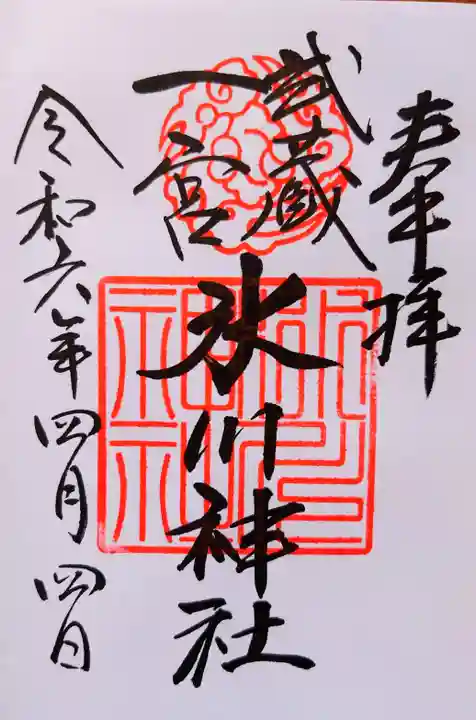 奉拝
武蔵
一宮
氷川神社
令和六年四月四日
氷川神社